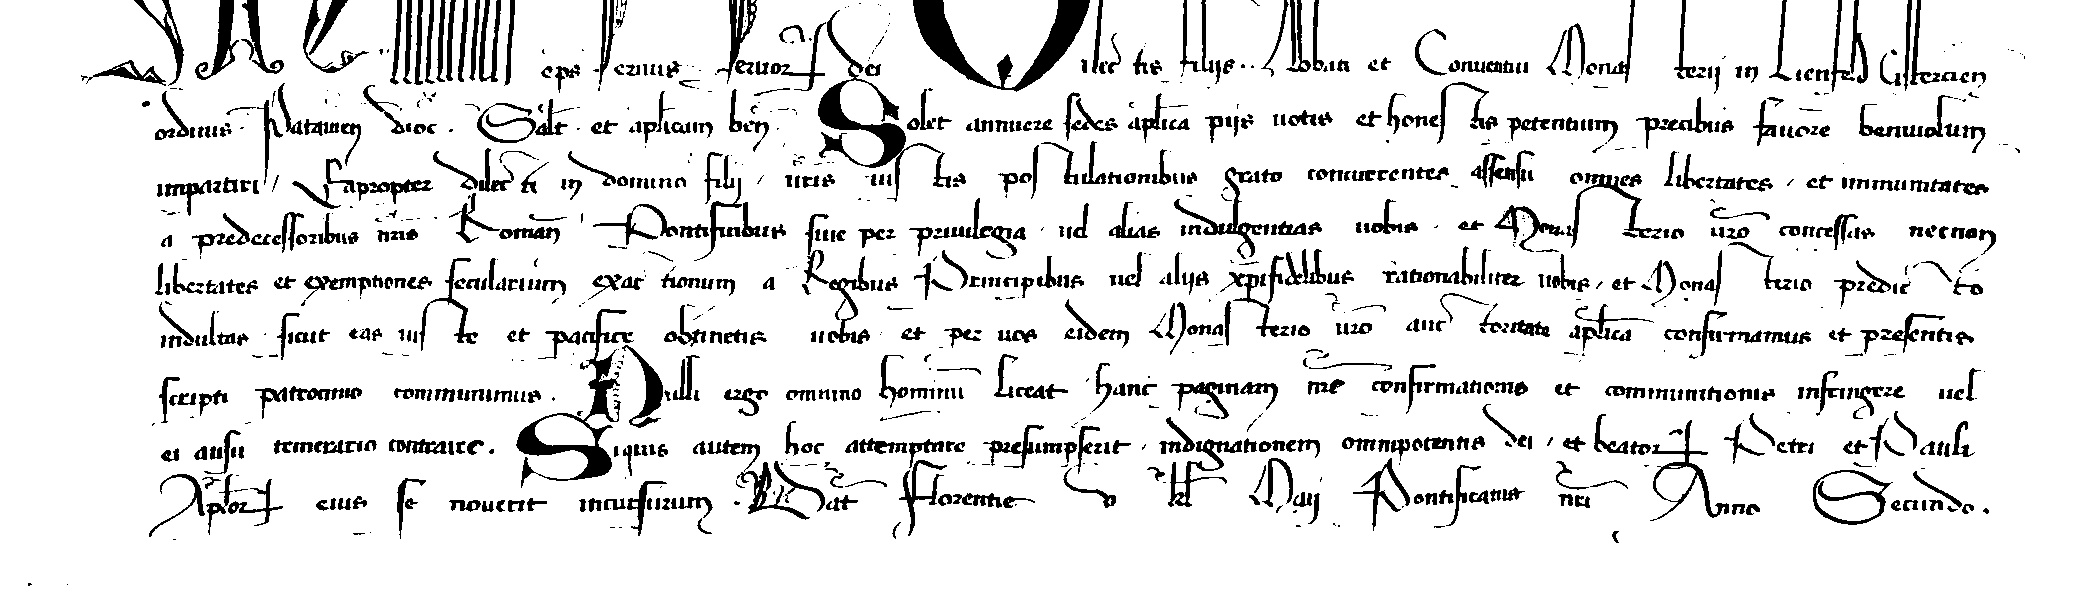 eps seruus seruor dei Dilectis filiis .. Abbati et Conuentui Monasterij in Lienfeld Cistercien
ordinis Patauien dioc . Salt . et aplicam ben . Solet annuere sedes aplica pijs uotis et honestis petentium precibus fauore beniuolum
impartiri / Eapropter dilecti in domino filij / uris iustis postulationibus grato concurrentes assensu omnes libertates / et immunitates
a predecessoribus nris Roman Pontificibus siue per priuilegia uel alias indulgentias uobis . et Monasterio uro concessas necnon
libertates et exemptiones secularium exactionum a Regibus Principibus uel alijs xpifidelibus rationabiliter uobis / et Monasterio predicto
indultas sicut eas iuste et pacifice obtinetis uobis et per uos eidem Monasterio uro auctoritate aplica confirmamus et presentis
scripti patrocinio communimus . Nulli ergo omnino hominu liceat hanc paginam nre confirmationis et communitionis infringere uel
ei ausu temerario contraire . Siquis autem hoc attemptare presumpserit / indignationem omnipotentis dei / et beator Petri et Pauli
Aplor eius se nouerit incursurum . Dat Florentie v kl Maij Pontificatus nri Anno Secundo .